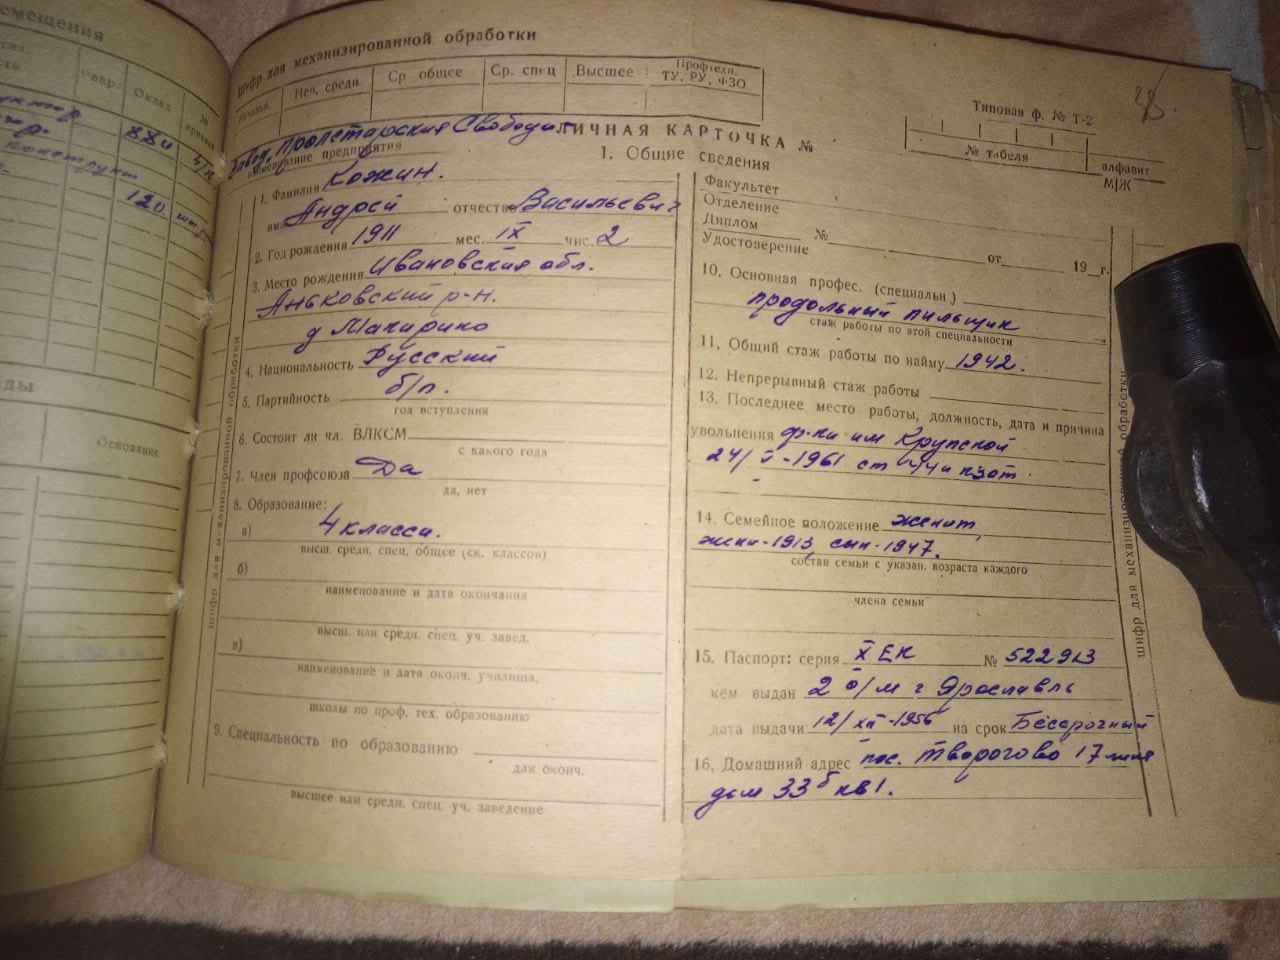 емещения
Разр.
Оклад
884
4/п
120
Основание
Шифр для механизированной обработки
Начальн.
Неп. средн.
Ср общее
Ср. спец
Высшее
Профтехн.
ТУ, РУ, ФЗО
38.
Типовая ф. № Т-2
№ табеля
алфавит
М|Ж
ЛИЧНАЯ КАРТОЧКА №
1. Общие сведения
Завод Пролетарская Свобода
наименование предприятия
1. Фамилия Кожин.
имя Андрей отчество Васильевич
2. Год рождения 1911 мес. IX чис. 2
3. Место рождения Ивановская обл.
Аньковский р-н.
д
4. Национальность Русский
5. Партийность б/п.
год вступления
6. Состоит ли чл. ВЛКСМ
с какого года
7. Член профсоюза Да
да, нет
8. Образование:
а) 4 класса.
высш. средн. спец. общее (ск. классов)
б)
наименование и дата окончания
высш. или средн. спец. уч. завед.
в)
наименование и дата оконч. училища,
школы по проф. тех. образованию
9. Специальность по образованию
для оконч.
высшее или средн. спец. уч. заведение
Факультет
Отделение
Диплом
№
Удостоверение
от 19 г.
10. Основная професс. (специальн.)
продольный пильщик
стаж работы по этой специальности
11. Общий стаж работы по найму 1942.
12. Непрерывный стаж работы
13. Последнее место работы, должность, дата и причина
увольнения ф-ка им Крупской
24/V-1961 ст кзот.
14. Семейное положение женат,
жена-1913, сын-1947.
состав семьи с указан. возраста каждого
члена семьи
15. Паспорт: серия X ЕК № 522913
кем выдан 2 о/м г Ярославль
дата выдачи 12/XII-1956 на срок Бессрочный
16. Домашний адрес пос. Творогово 17 линия
дом 33б кв 1.
шифр для механизированной обработки
шифр для механизированной обработки